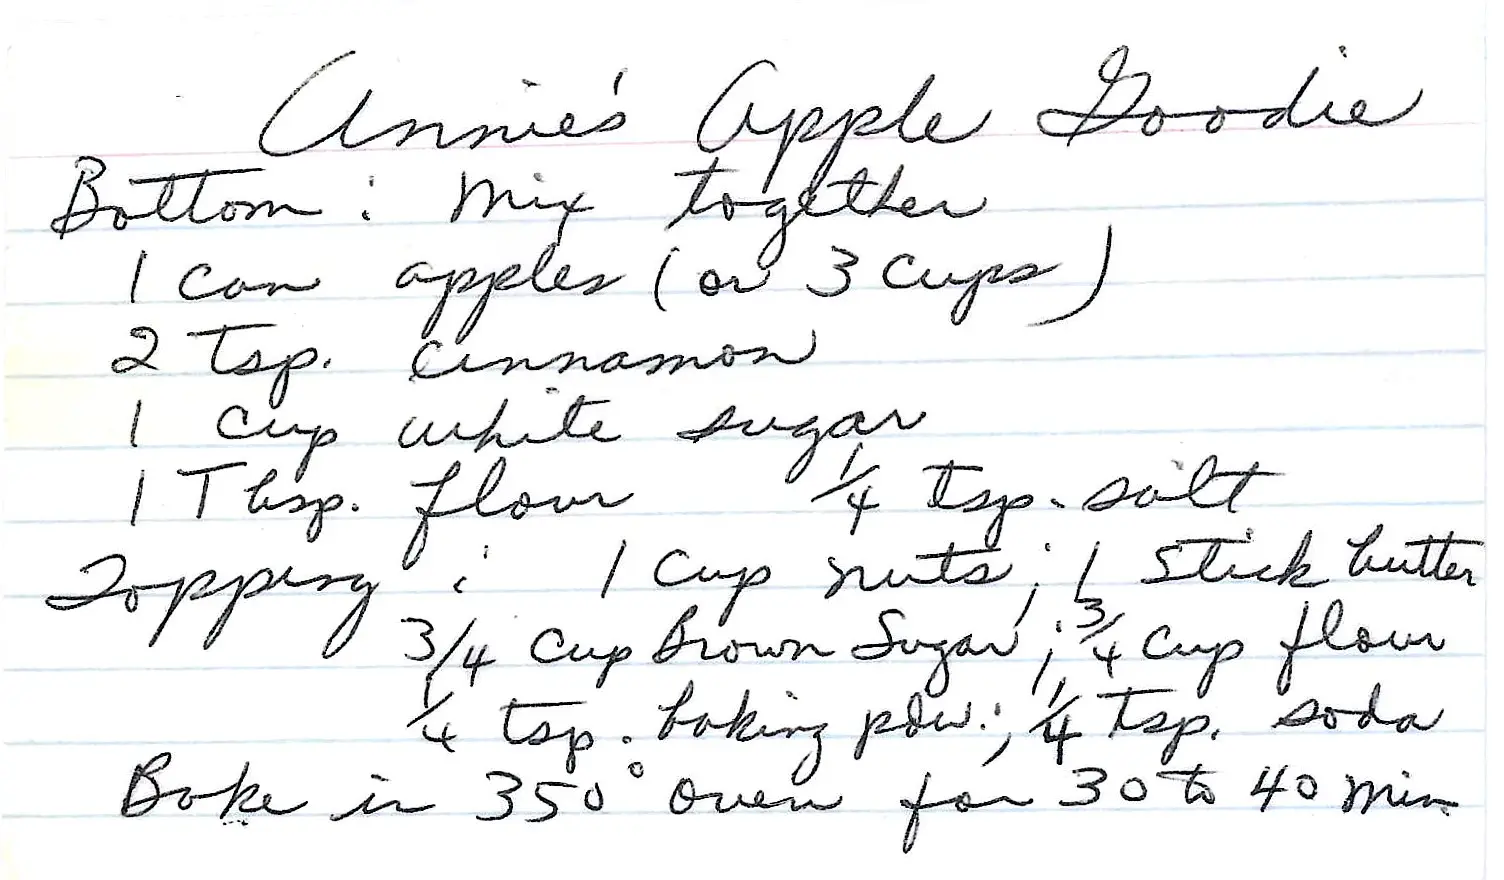 Annie's Apple Goodie
Bottom: Mix together
1 can apples (or 3 cups)
2 tsp. cinnamon
1 cup white sugar
1 Tbsp. flour 1/4 tsp. salt
Topping: 1 cup nuts; 1 stick butter
3/4 cup Brown Sugar; 3/4 cup flour
1/4 tsp. baking pdw.; 1/4 tsp. soda
Bake in 350° oven for 30 to 40 min